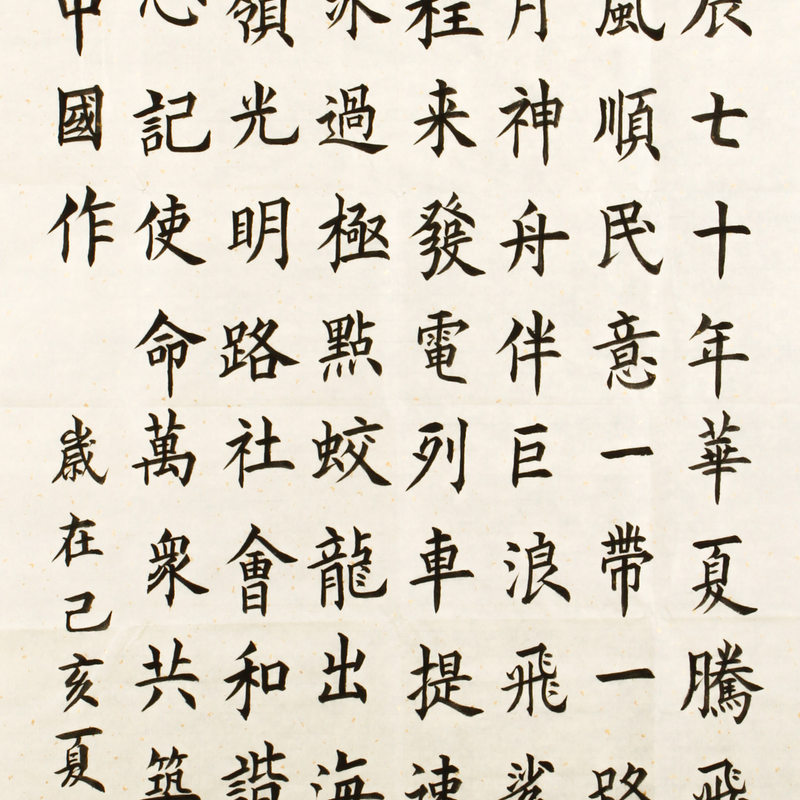 辰七十年華夏騰飛
風順民意一帶一路
月神舟伴巨浪飛鯊
程来發電列車提速
冰過極點蛟龍出海
領光明路社會和諧
心記使命萬衆共築
中國作
歲在己亥夏